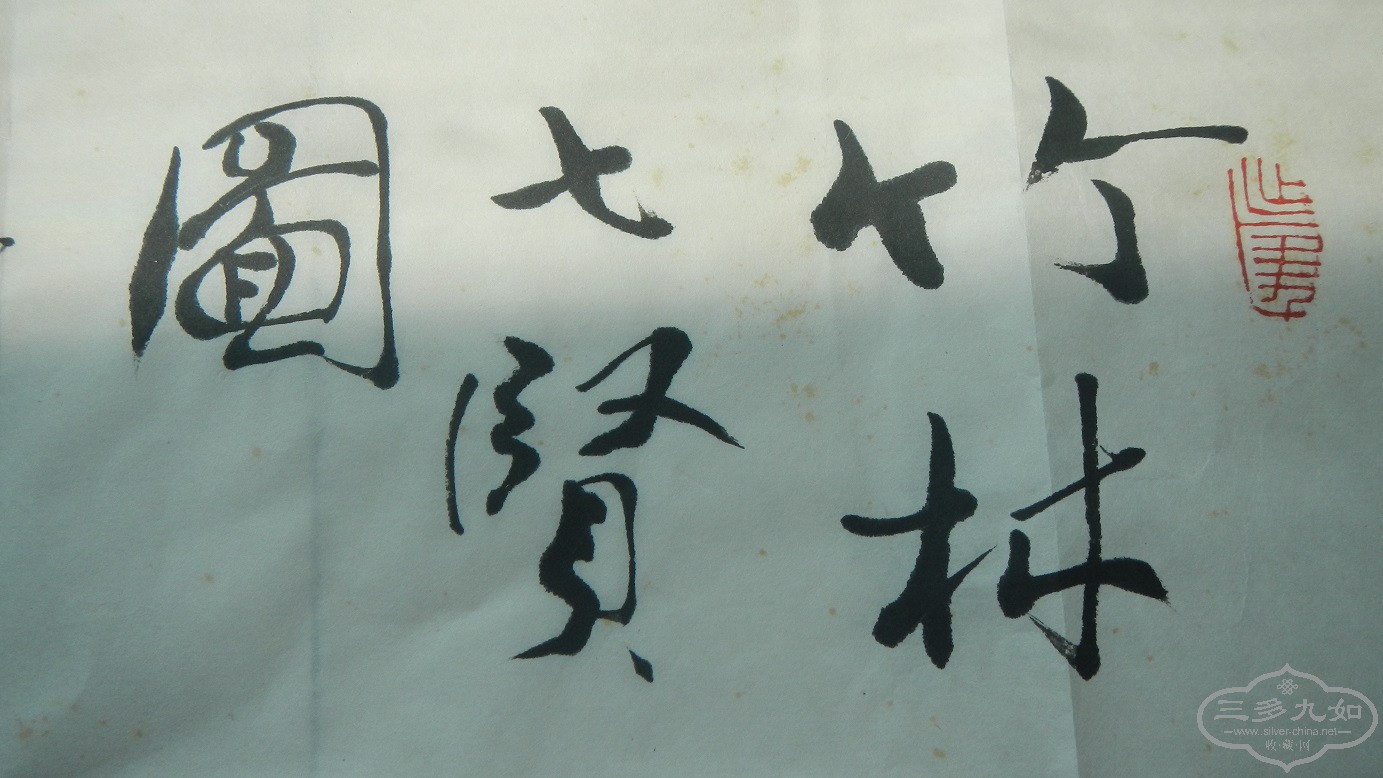 竹林
七賢
圖
三多九如
www.silver-china.net
收·藏·网